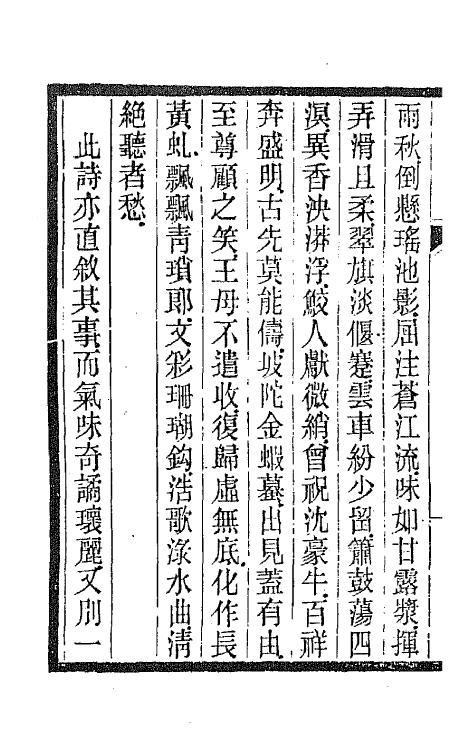 雨秋倒懸瑤池影屈注蒼江流味如甘露漿揮
弄滑且柔翠旗淡偃蹇雲車紛少留簫鼓蕩四
溟異香泱漭浮鮫人獻微綃曾祝沈豪牛百祥
奔盛明古先莫能儔坡陀金蝦蟇出見蓋有由
至尊顧之笑王母不遣收復歸虛無底化作長
黃虬飄飄青瑣郎文彩珊瑚鉤浩歌淥水曲清
絕聽者愁
此詩亦直敘其事而氣味奇譎瓌麗又別一